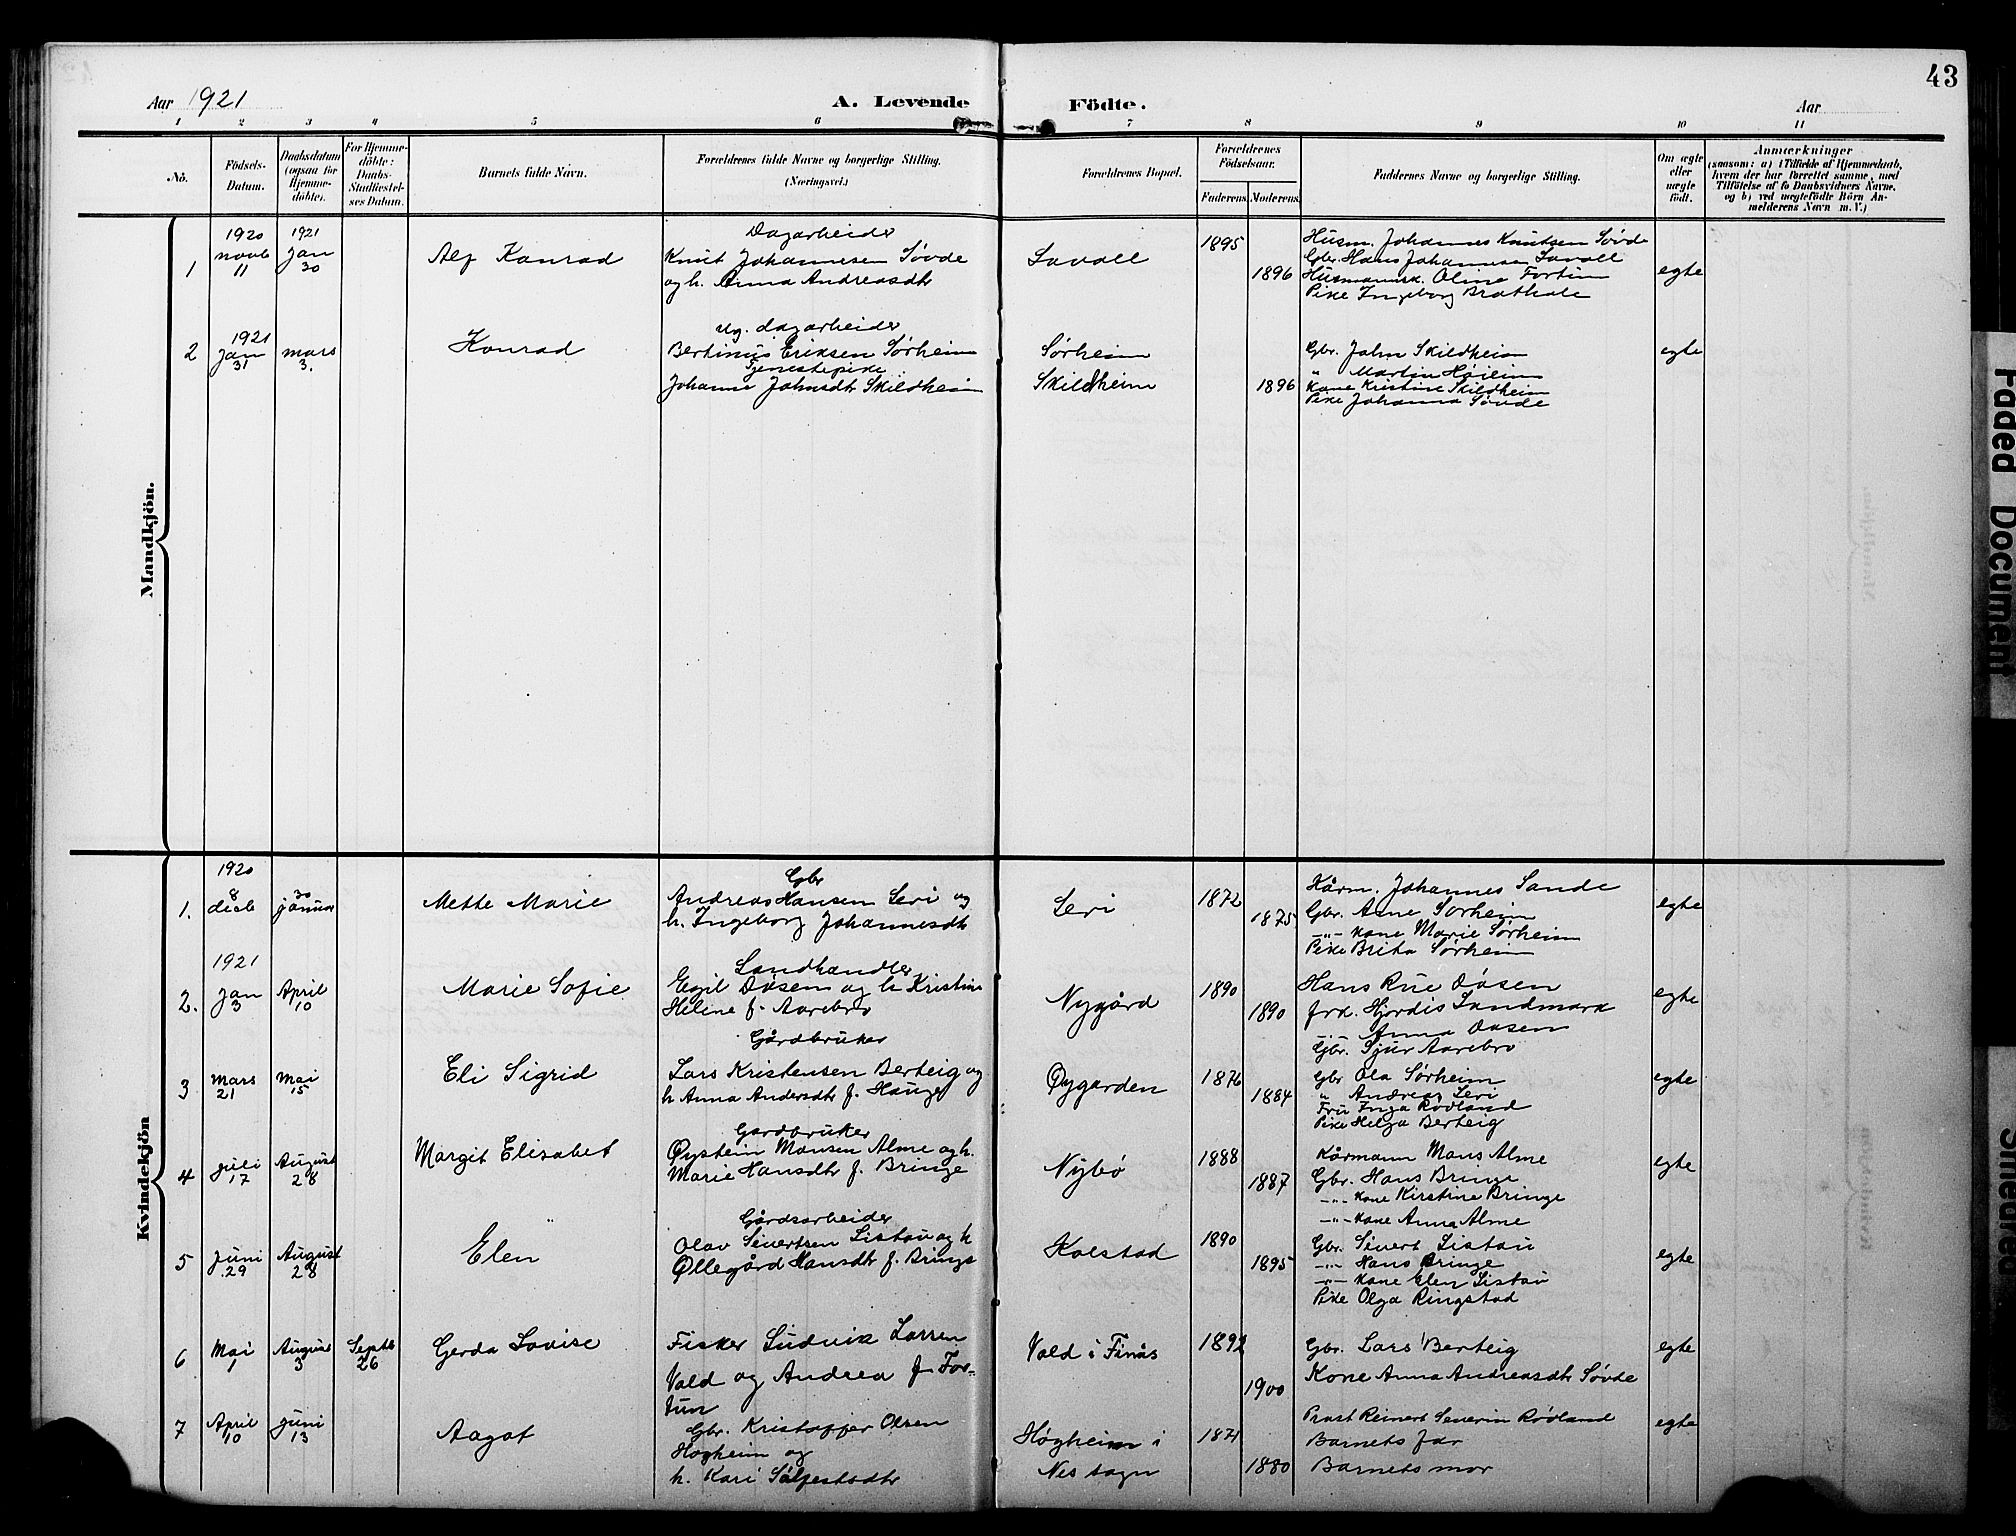 43
Aar 1921
A. Levende Födte.
Aar
1 2 3 4 5 6 7 8 9 10 11
No.
Födsels-Datum.
Daabsdatum (ogsaa for Hjemmedöbte).
For Hjemmedöbte: Daabs-Stadfæstelses Datum.
Barnets fulde Navn.
Forældrenes fulde Navne og borgerlige Stilling. (Næringsvei.)
Forældrenes Bopæl.
Forældrenes Födselsaar.
Faderens
Moderens
Faddernes Navne og borgerlige Stilling.
Om ægte eller uægte födt.
Anmærkninger
(saasom: a) i Tilfælde af Hjemmedaab, hvem der har forrettet samme, med Tilföielse af to Daabsvidners Navne, og b) ved uægtefödte Börn Anmelderens Navn m. V.)
Mandkjön.
1
1920 novb 11
1921 Jan 30
Alf Konrad
Dagarbeider
Knut Johannesen Søvde
og h. Anna Andreasdtr
Lavoll
1895
1896
Husm. Johannes Knutsen Søvde
Gbr. Hans Johannesen Lavoll
Husmannsk. Oline Fortun
Pike Ingeborg Bråthole
egte
2
1921 Jan 31
mars 3.
Konrad
Ug. dagarbeider
Bertinus Eriksen Sørheim
Tjenestepike
Johanne Johnsdtr Skildheim
Sørheim
Skildheim
1896
Gbr. John Skildheim
" Martin Høiheim
Kone Kristine Skildheim
Pike Johanna Søvde
egte
Kvindekjön
1.
1920
8 decb
30 januar
Mette Marie
Gbr
Andreas Hansen Leri og
h. Ingeborg Johannesdtr
Leri
1872
1875
Kårm. Johannes Sande
Gbr. Arne Sørheim
-"- Kone Marie Sørheim
Pike Brita Sørheim
egte
2.
1921
Jan 3
April 10
Marie Sofie
Landhandler
Egil Døsen og h Kristine
Helene f. Aarebro
Nygård
1890
1890
Hans Rue Døsen
frk. Hjørdis Landmark
-"- Anna Døsen
Gbr. Sjur Aarebro
egte
3
Mars 21
Mai 15
Eli Sigrid
Gårdbruker
Lars Kristensen Berteig og
h Anna Andersdtr f. Hauge
Øygarden
1876
1884
Gbr Ola Sørheim
" Andreas Leri
Fru Inga Rødland
Pike Helga Berteig
egte
4
Juli 17
August 28
Margit Elisabet
Gardbruker
Øystein Monsen Alme og h.
Marie Hansdtr f. Bringe
Nybø
1888
1887
Kårmann Mons Alme
Gbr. Hans Bringe
-"- Kone Kirstine Bringe
-"- Kone Anna Alme
egte
5
Juni 29
August 28
Elen
Gårdsarbeider
Olav Sivertsen Listau og h
Øllegård Hansdtr f. Bringe
Kolstad
1890
1895
Gbr. Sivert Listau
-"- Hans Bringe
-"- Kone Elen Listau
Pike Olga Ringstad
egte
6
Mai 1
August 3
Septb 26
Gerda Lovise
Fisker Ludvik Larsen
Vold og Andrea f. For-
tun
Vold i Finås
1892
1900
Gbr. Lars Berteig
Kone Anna Andreasdtr Søvde
egte
7
April 10
Juni 13
Aagot
Gbr. Kristoffer Olsen
Høgheim og
h. Kari
Høgheim i
Nes sogn
1871
1880
Prost Reinert Severin Rødland
Barnets far
Barnets mor
egte
Faded Document
Smeared